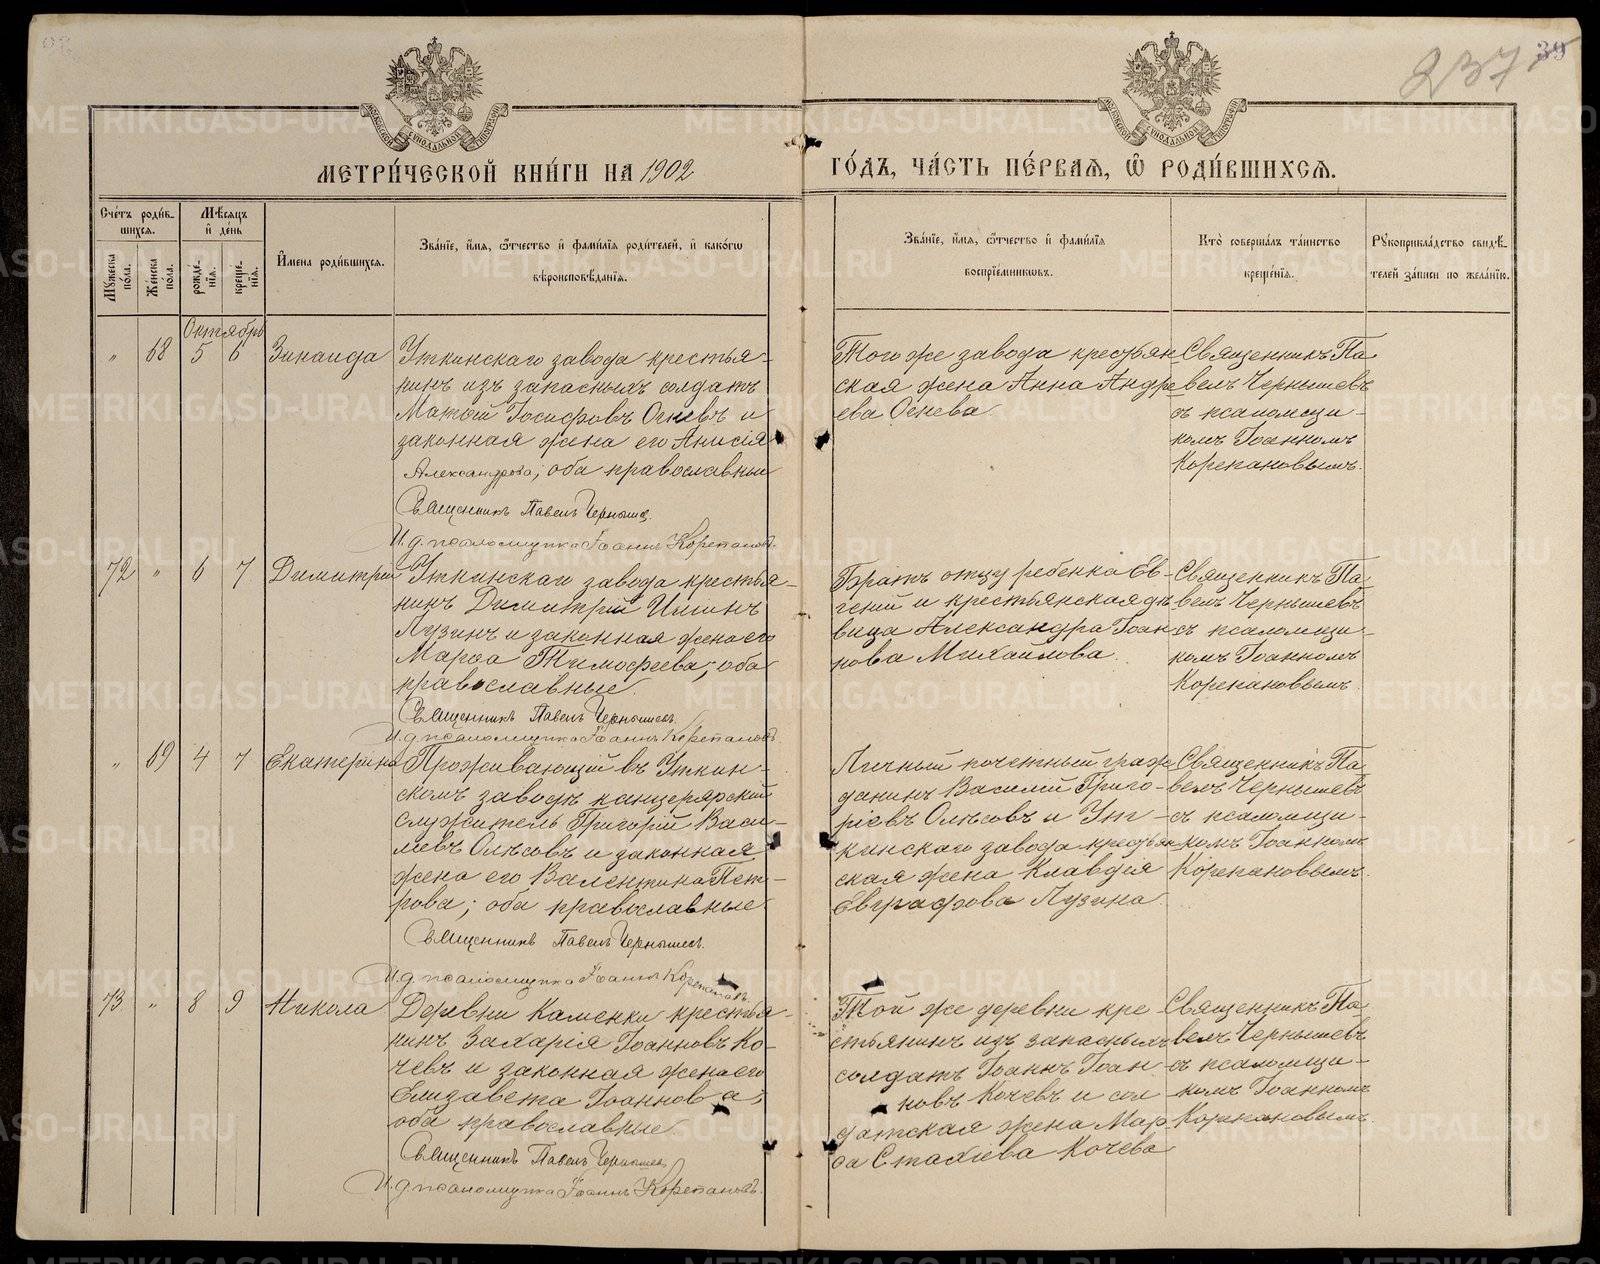 237
39
МЕТРИ́ЧЕСКОЙ КНИ́ГИ НА 1902 ГО́ДЪ, ЧА́СТЬ ПЕ́РВАѦ, Ѡ҆ РОДИ́ВШИХСѦ.
Сче́тъ роди́в-
шихсѧ.
Мꙋ́жеска по́ла.
Же́нска по́ла.
Мѣ́сѧцъ и҆ де́нь
рожде́-
нїѧ.
креще́-
нїѧ.
И҆мена роди́вшихсѧ.
Зва́нїе, и҆́мѧ, ѻ҆́тчество и҆ фамилїѧ роди́телей, и҆ како́гѡ
вѣроисповѣ́данїѧ.
Зва́нїе, и҆́мѧ, ѻ҆́тчество и҆ фами́лїѧ
воспрїе́мникѡвъ.
Кто̀ соверша́лъ та́инство
креще́нїѧ.
Рꙋкоприкла́дство свидѣ́-
телей за́писи по жела́нїю.
Октябрь
" 68 5 6 Зинаида
Уткинскаго завода крестья-
нинъ изъ запасныхъ солдатъ
Матѳій Іосифовъ Огневъ и
законная жена его Анисія
Александрова; оба православные
Священникъ Павелъ Чернышев.
И. д. псаломщика Іоаннъ Корепановъ.
Того же завода крестьян
ская жена Анна Андре
ева Огнева
Священникъ Па-
велъ Чернышевъ
съ псаломщи-
комъ Іоанномъ
Корепановымъ.
72 " 6 7 Димитрій
Уткинскаго завода крестья-
нинъ Димитрій
Лузинъ и законная жена его
Марѳа Тимофеева; оба
православные.
Священникъ Павелъ Чернышевъ.
И. д. псаломщика Іоаннъ Корепановъ.
Братъ отцу ребенка Ев-
геній и крестьянская дѣ
вица Александра Іоан
нова Михайлова.
Священникъ Па-
велъ Чернышевъ
съ псаломщи-
комъ Іоанномъ
Корепановымъ
" 69 4 7 Екатерина
Проживающій въ Уткин-
скомъ заводѣ канцелярскій
служитель Григорій Васи-
льевъ Олѣсовъ и законная
жена его Валентина Пет-
рова; оба православные
Священникъ Павелъ Чернышев.
И. д. псаломщика Іоаннъ Корепановъ.
Личный почетный граж
данинъ Василій Григо-
ріевъ Олѣсовъ и Ут-
кинскаго завода крестьян
ская жена Клавдія
Евграфова Лузина
Священникъ Па-
велъ Чернышевъ
съ псаломщи-
комъ Іоанномъ
Корепановымъ.
73 " 8 9 Никола
Деревни Каменки крестья-
нинъ Захарія Іоанновъ Ко-
чевъ и законная жена его
Елизавета Іоаннова;
оба православные
Священникъ Павелъ Чернышев
И. д. псаломщика Іоаннъ Корепановъ.
Той же деревни кре
стьянинъ изъ запасныхъ
солдатъ Іоаннъ Іоан
новъ Кочевъ и сол
датская жена Мар
ѳа Стахіева Кочева
Священникъ Па-
велъ Чернышевъ
съ псаломщи-
комъ Іоанномъ
Корепановымъ
METRIKI.GASO-URAL.RU